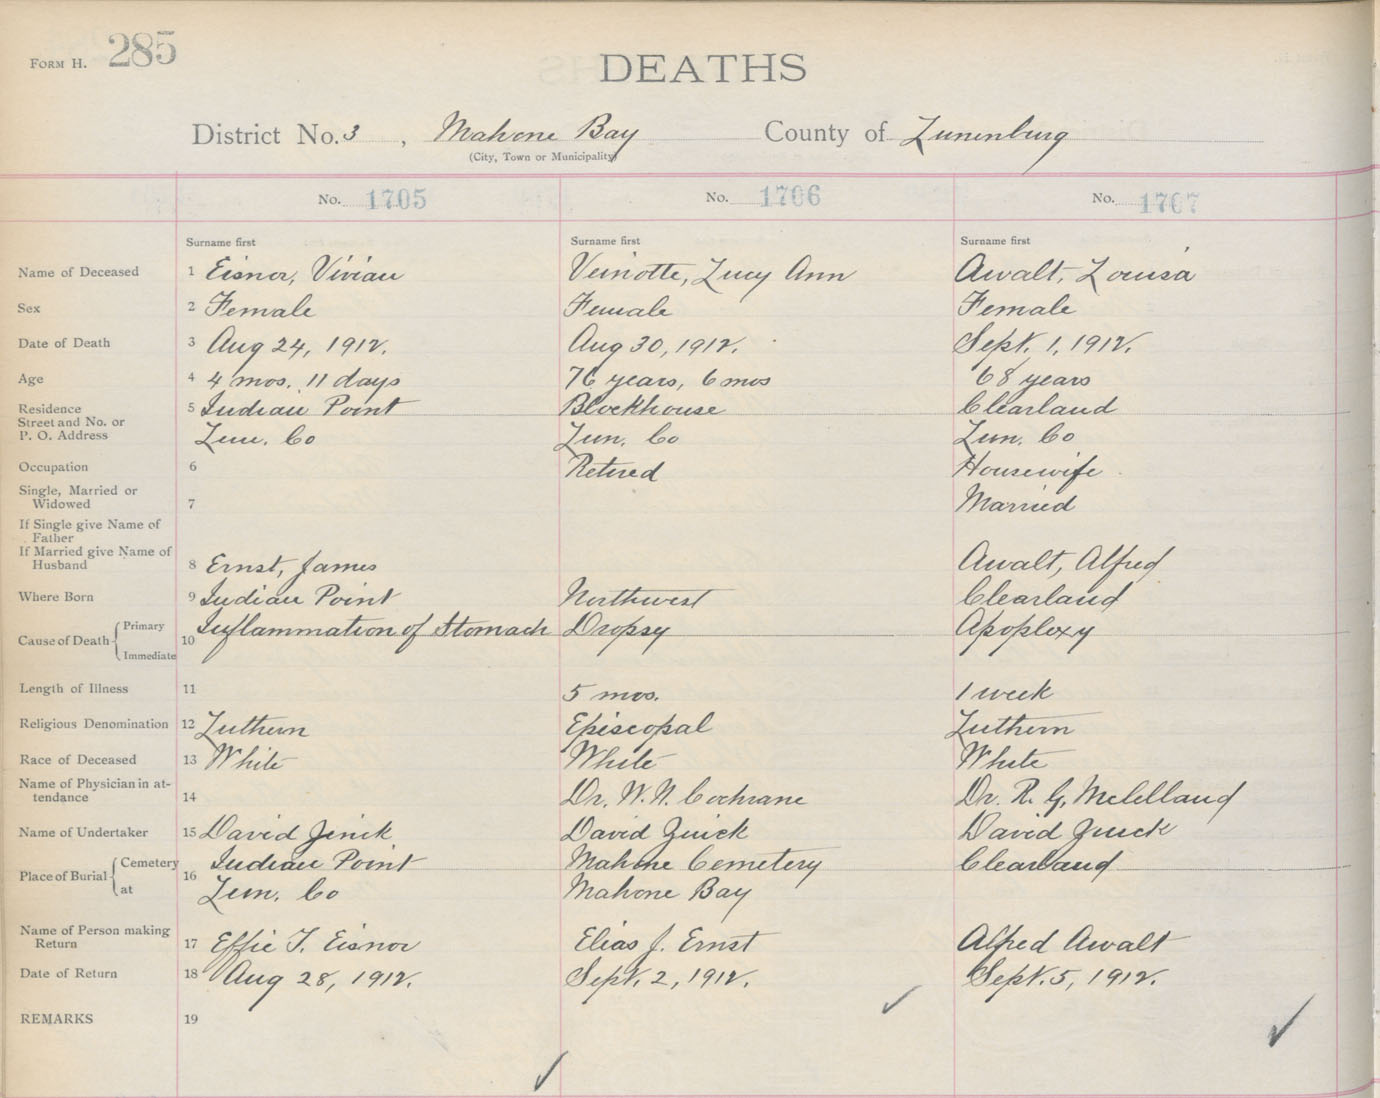 FORM H. 285
DEATHS
District No. 3, Mahone Bay County of Lunenburg
(City, Town or Municipality)
No. 1705 No. 1706 No. 1707
Surname first Surname first Surname first
Name of Deceased 1 Eisnor, Vivian Veinotte, Lucy Ann Awalt, Louisa
Sex 2 Female Female Female
Date of Death 3 Aug 24, 1912. Aug 30, 1912. Sept. 1, 1912.
Age 4 4 mos. 11 days 76 years, 6 mos 68 years
Residence 5 Indian Point Blockhouse Clearland
Street and No. or
P. O. Address Lun. Co Lun. Co Lun. Co
Occupation 6 Retired Housewife
Single, Married or
Widowed 7 Married
If Single give Name of
Father
If Married give Name of
Husband 8 Ernst, James Awalt, Alfred
Where Born 9 Indian Point Northwest Clearland
Cause of Death Primary 10 Inflammation of Stomach Dropsy Apoplexy
Immediate
Length of Illness 11 5 mos. 1 week
Religious Denomination 12 Luthern Episcopal Luthern
Race of Deceased 13 White White White
Name of Physician in at-
tendance 14 Dr. W. N. Cochrane Dr. R. G. McLelland
Name of Undertaker 15 David Zinck David Zinck David Zinck
Place of Burial Cemetery 16 Indian Point Mahone Cemetery Clearland
at Lun. Co Mahone Bay
Name of Person making
Return 17 Effie T. Eisnor Elias J. Ernst Alfred Awalt
Date of Return 18 Aug 28, 1912. Sept. 2, 1912. Sept. 5, 1912.
REMARKS 19